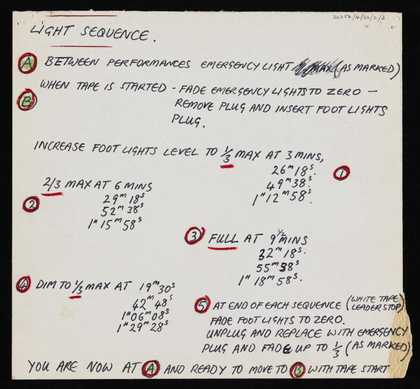 LIGHT SEQUENCE.
A BETWEEN PERFORMANCES EMERGENCY LIGHT (AS MARKED)
B WHEN TAPE IS STARTED - FADE EMERGENCY LIGHTS TO ZERO -
REMOVE PLUG AND INSERT FOOT LIGHTS
PLUG.
INCREASE FOOT LIGHTS LEVEL TO 1/3 MAX AT 3 MINS,
26ᵐ 18ˢ.
49ᵐ 38ˢ.
1ʰ 12ᵐ 58ˢ.
1
2/3 MAX AT 6 MINS
2
29ᵐ 18ˢ
52ᵐ 38ˢ
1ʰ 15ᵐ 58ˢ
3 FULL AT 9 MINS
32ᵐ 18ˢ.
55ᵐ 38ˢ
1ʰ 18ᵐ 58ˢ.
4 DIM TO 1/3 MAX AT 19ᵐ 30ˢ
42ᵐ 48ˢ
1ʰ 06ᵐ 08ˢ
1ʰ 29ᵐ 28ˢ
5 AT END OF EACH SEQUENCE (WHITE TAPE LEADER STOP)
FADE FOOT LIGHTS TO ZERO.
UNPLUG AND REPLACE WITH EMERGENCY
PLUG AND FADE UP TO 1/3 (AS MARKED)
YOU ARE NOW AT A AND READY TO MOVE TO B WITH TAPE START